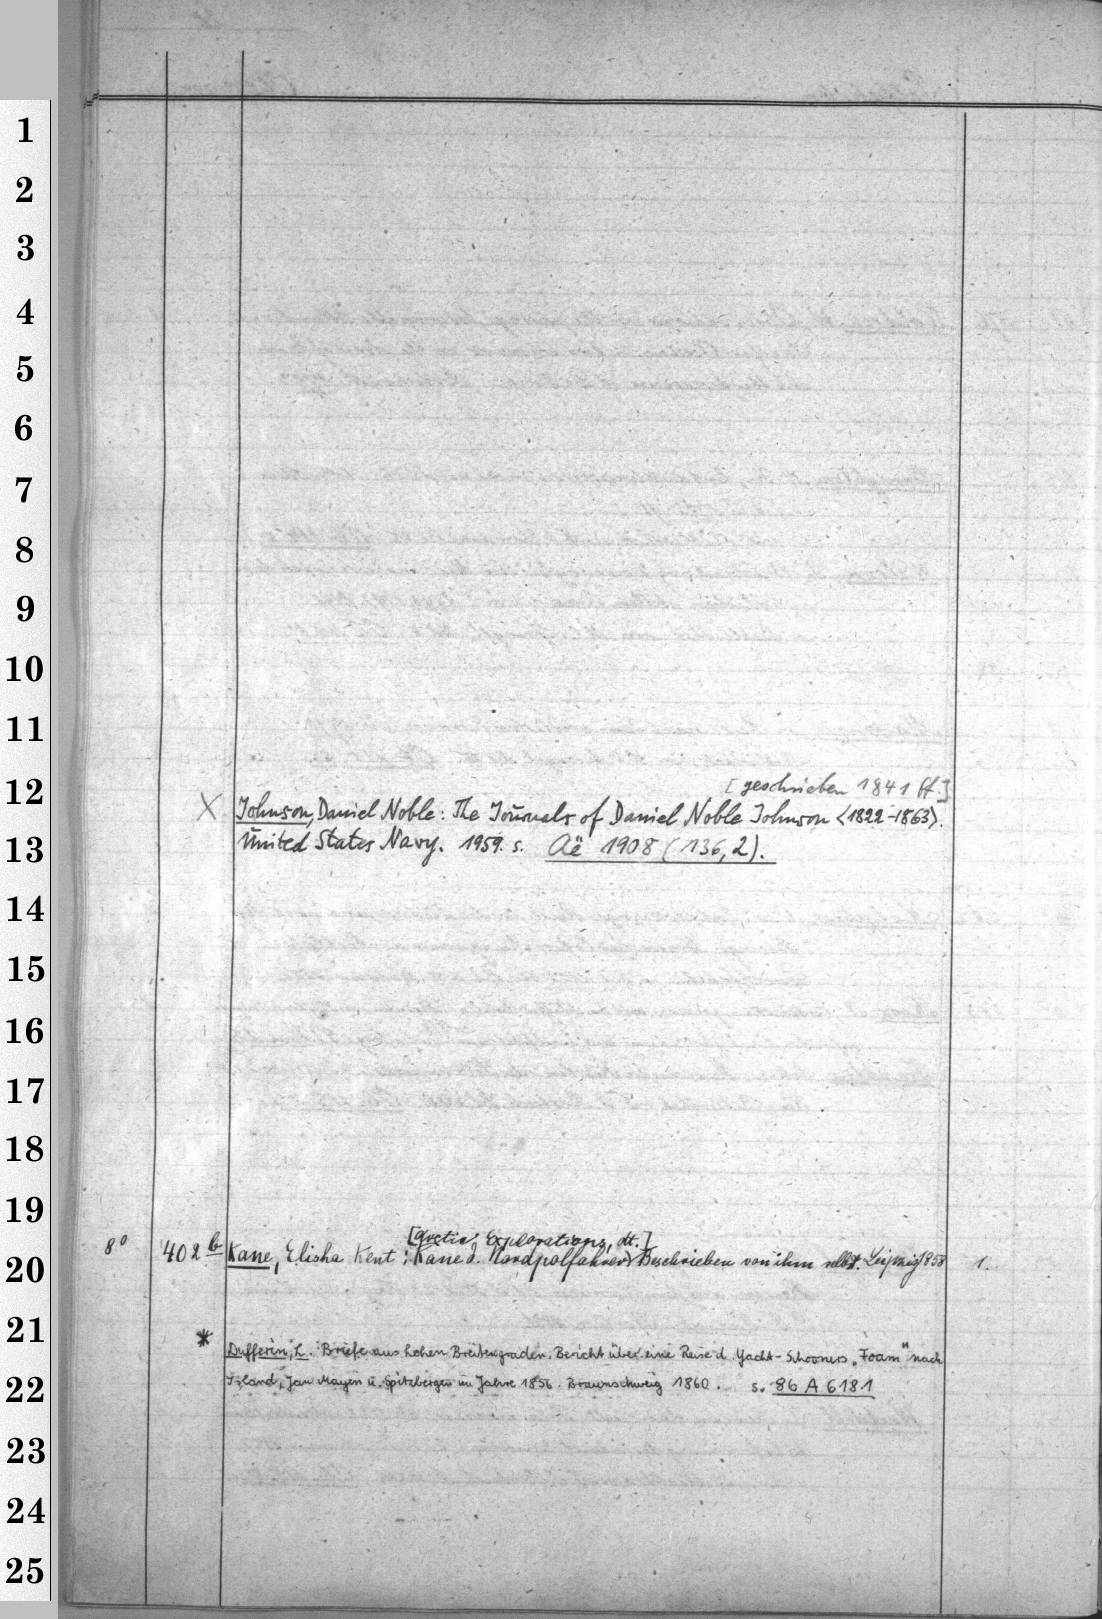 1
2
3
4
5
6
7
8
9
10
11
12
[geschrieben 1841 ff.]
X Johnson, Daniel Noble: The Journals of Daniel Noble Johnson <1822-1863>.
13
United States Navy. 1959. s. Aë 1908 (136,2).
14
15
16
17
18
19
[Arctic Explorations, dt.]
8° 402 b Kane, Elisha Kent: Kane d. Nordpolfahrer. Beschrieben von ihm selbst. Leipzig 1858 1.
20
21
* Dufferin, L. Briefe aus hohen Breitengraden. Bericht über eine Reise d. Yacht-Schooners „Foam" nach
22
Island, Jan Mayen u. Spitzbergen im Jahre 1856. Braunschweig 1860. s. 86 A 6181
23
24
25